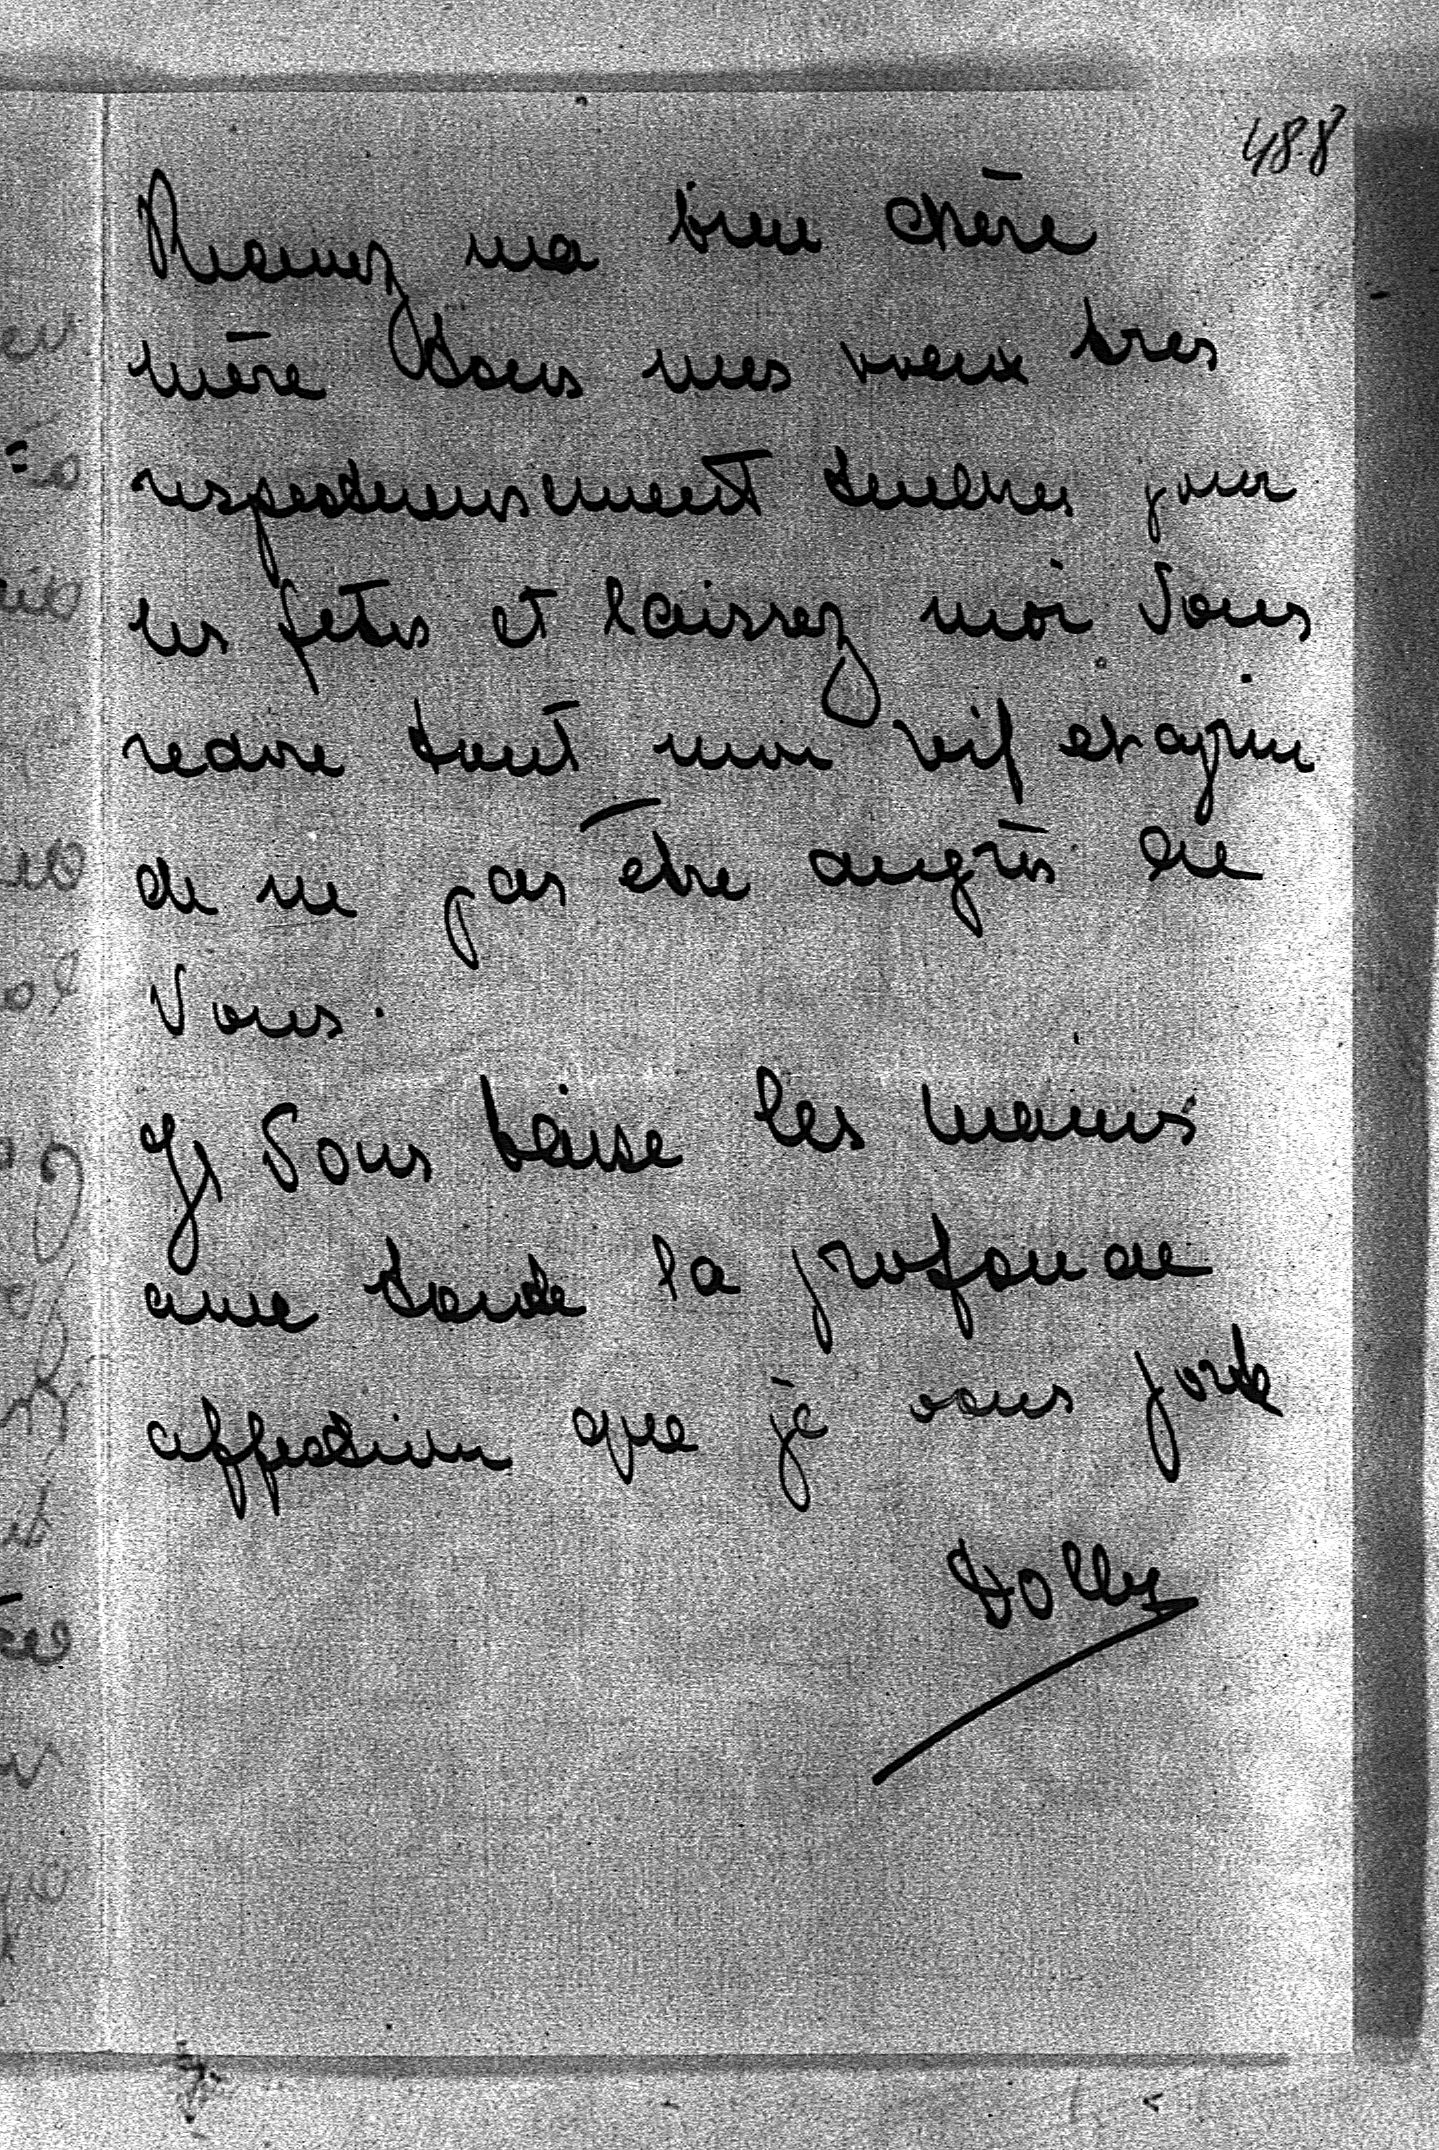 488
Recevez ma bien chère
mère tous mes voeux tres
respectueusement tendres pour
les fetes et laissez moi Vous
redire tout mon vif chagrin
de ne pas être auprès de
Vous.
Je Vous baise les mains
avec toute la profonde
affection que je vous porte
Dolly